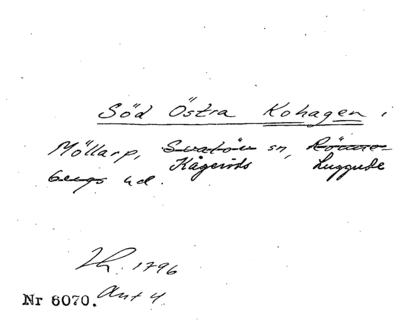 Söd Östra Kohagen i
Möllarp, Svalöv sn, Rönne-
Kågeröds Luggude
bergs hd.
Lh. 1796
Akt 4
Nr 6070.